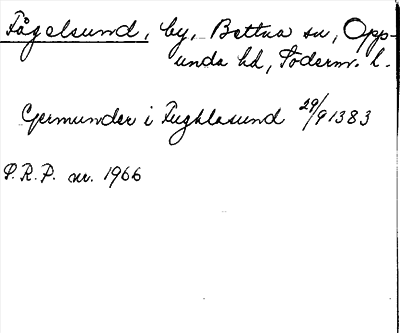 Fågelsund, by, Bettna sn, Opp-
unda hd, Söderm. l.
Germunder i Fughlasund 29/9 1383
S.R.P. nr. 1966